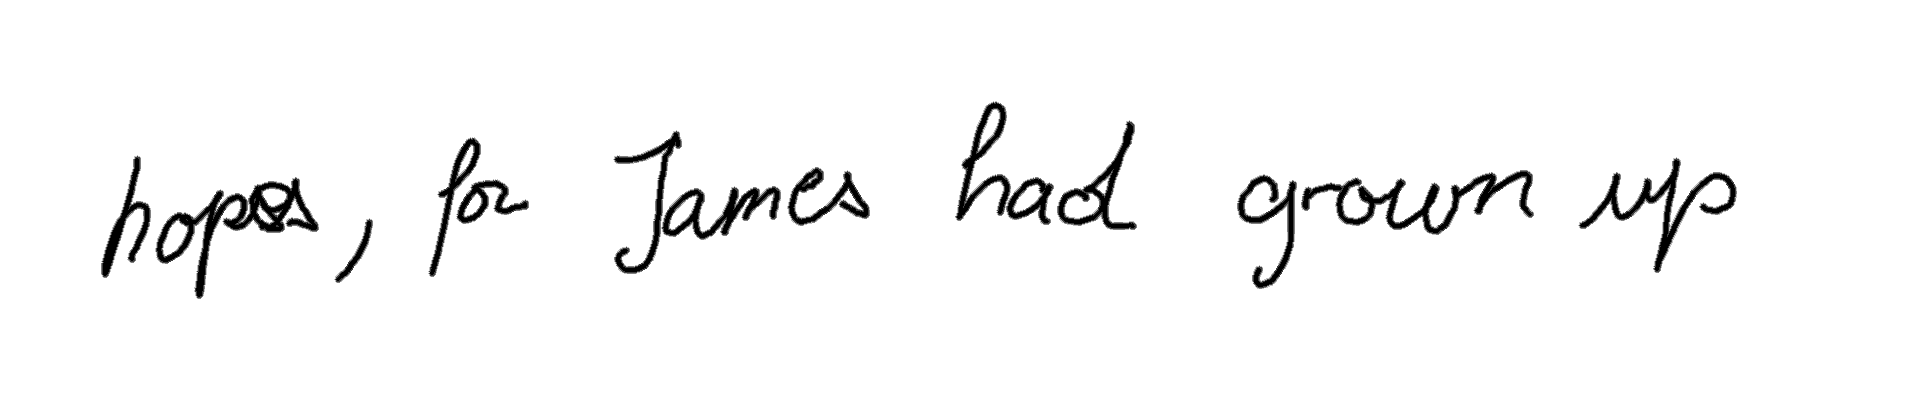 hopes, for James had grown up